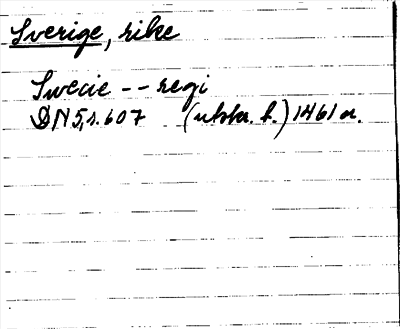 Sverige, rike
Swecie -- regi
DN 5, s. 607 (utstr. h.) 1461 or.